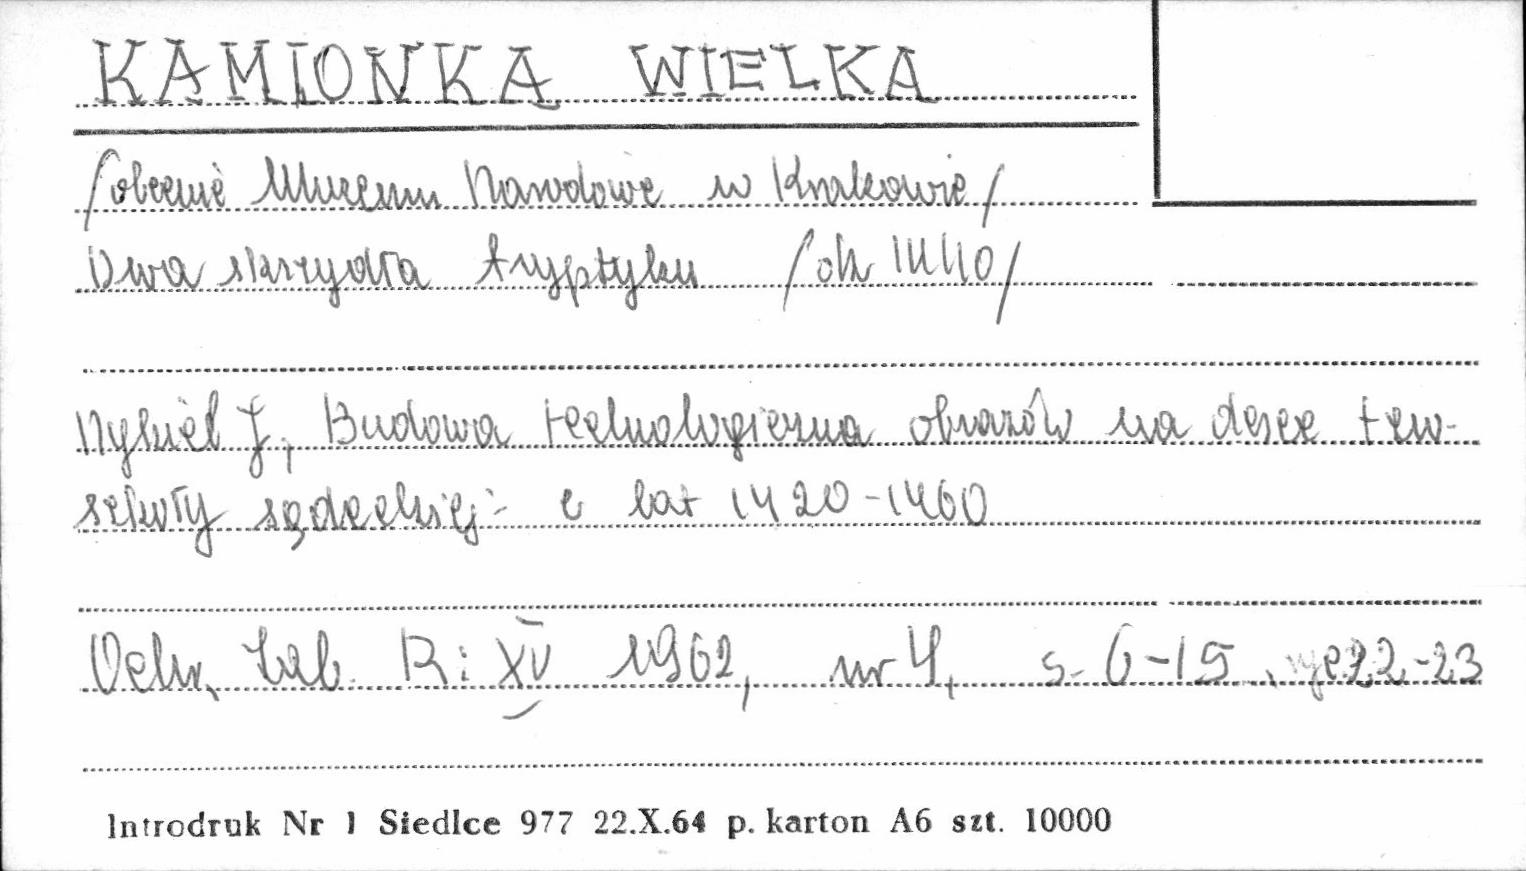 KAMIONKA WIELKA
/obecnie Muzeum Narodowe w Krakowie/
Dwa skrzydła tryptyku /ok 1440/
Nykiel J., Budowa technologiczna obrazów na desce temp.
szkoły sądeckiej z lat 1420-1460
Ochr. Zab. R: XV 1962, nr 4, s. 6-15, 22-23
Introdruk Nr 1 Siedlce 977 22.X.64 p. karton A6 szt. 10000